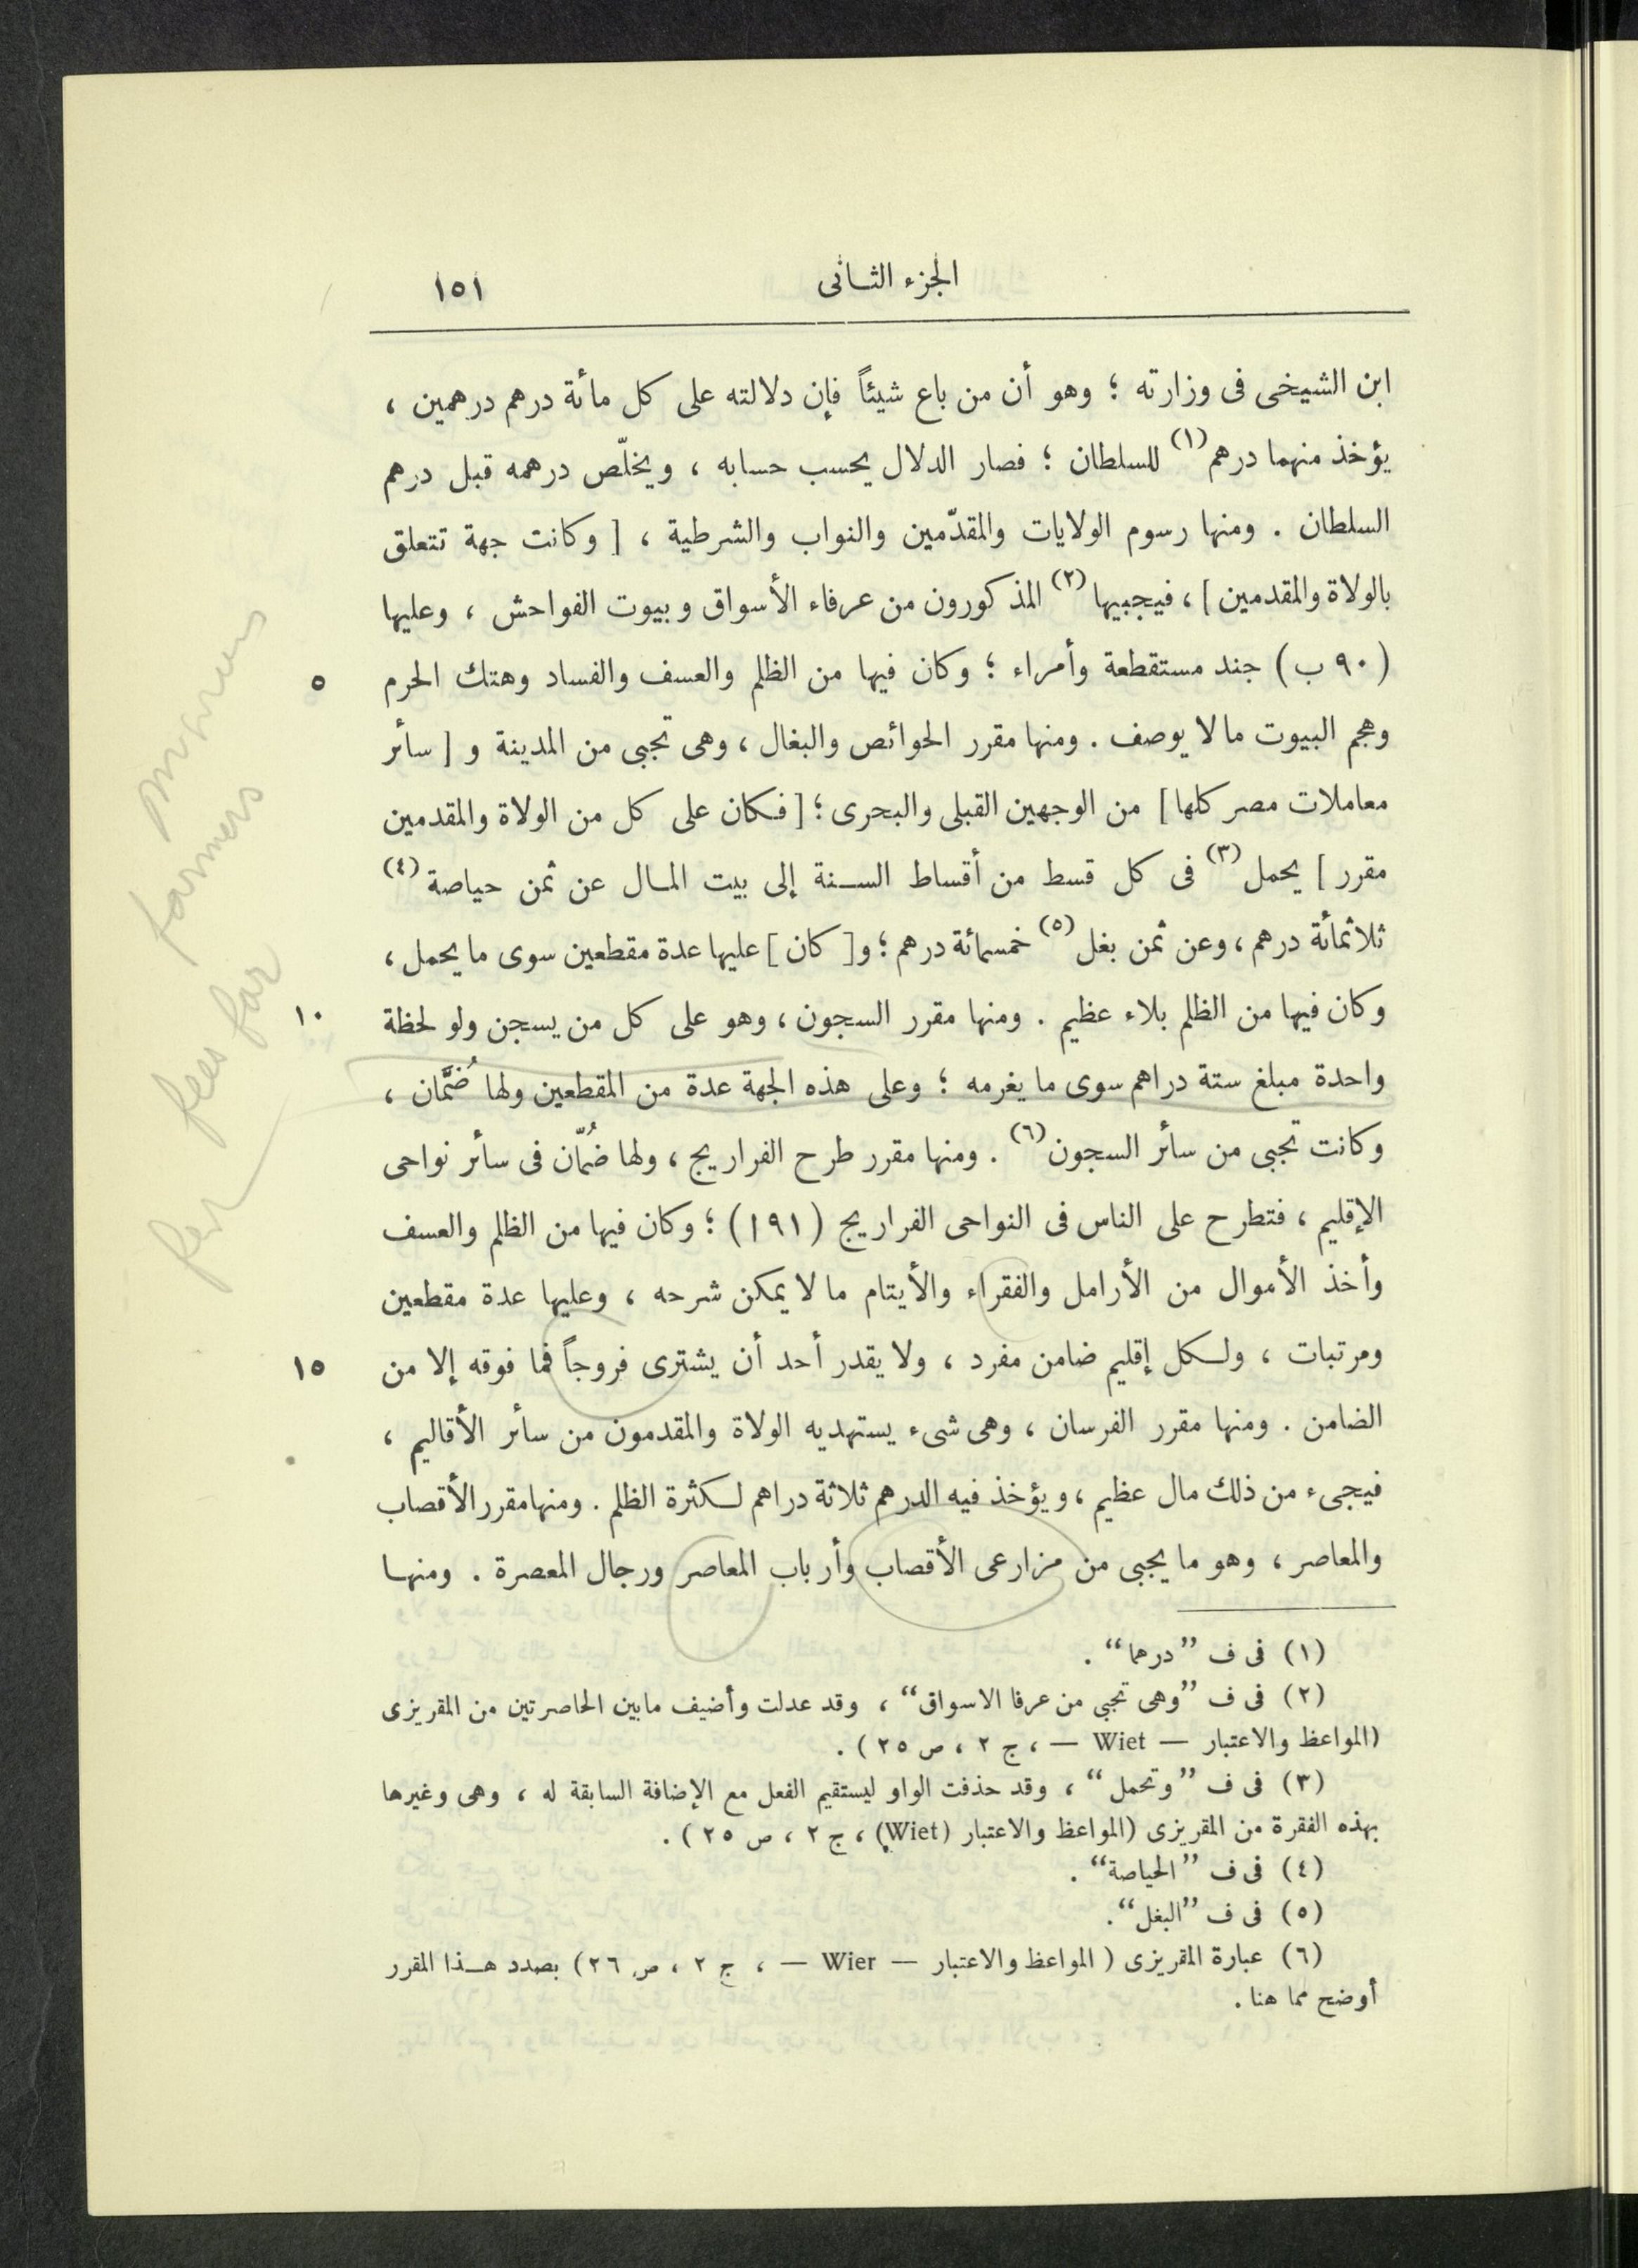 الجزء الثانى ١٥١
ابن الشيخى فى وزارته ؛ وهو أن من باع شيئاً فإن دلالته على كل مائة درهم درهمين ،
يؤخذ منهما درهم (١) للسلطان ؛ فصار الدلال يحسب حسابه ، ويخلّص درهمه قبل درهم
السلطان . ومنها رسوم الولايات والمقدّمين والنواب والشرطية ، [ وكانت جهة تتعلق
بالولاة والمقدمين ] ، فيجبيها (٢) المذكورون من عرفاء الأسواق وبيوت الفواحش ، وعليها
(٩٠ ب) جند مستقطعة وأمراء ؛ وكان فيها من الظلم والعسف والفساد وهتك الحرم
٥
وهجم البيوت ما لا يوصف . ومنها مقرر الحوائص والبغال ، وهى تجبى من المدينة و [ سائر
معاملات مصر كلها ] من الوجهين القبلى والبحرى ؛ [ فكان على كل من الولاة والمقدمين
مقرر ] يحمل (٣) فى كل قسط من أقساط السنة إلى بيت المال عن ثمن حياصة (٤)
ثلاثمائة درهم ، وعن ثمن بغل (٥) خمسمائة درهم ؛ و[ كان ] عليها عدة مقطعين سوى ما يحمل ،
وكان فيها من الظلم بلاء عظيم . ومنها مقرر السجون ، وهو على كل من يسجن ولو لحظة
١٠
واحدة مبلغ ستة دراهم سوى ما يغرمه ؛ وعلى هذه الجهة عدة من المقطعين ولها ضُمَّان ،
وكانت تجبى من سائر السجون (٦) . ومنها مقرر طرح الفراريج ، ولها ضُمّان فى سائر نواحى
الإقليم ، فتطرح على الناس فى النواحى الفراريج (١٩١) ؛ وكان فيها من الظلم والعسف
وأخذ الأموال من الأرامل والفقراء والأيتام ما لا يمكن شرحه ، وعليها عدة مقطعين
ومرتبات ، ولكل إقليم ضامن مفرد ، ولا يقدر أحد أن يشترى فروجاً فما فوقه إلا من
١٥
الضامن . ومنها مقرر الفرسان ، وهى شىء يستهديه الولاة والمقدمون من سائر الأقاليم ،
فيجىء من ذلك مال عظيم ، ويؤخذ فيه الدرهم ثلاثة دراهم لكثرة الظلم . ومنها مقرر الأقصاب
والمعاصر ، وهو ما يجبى من مزارعى الأقصاب وأرباب المعاصر ورجال المعصرة . ومنها
(١) فى ف ”درهما“ .
(٢) فى ف ”وهى تجبى من عرفا الاسواق“ ، وقد عدلت وأضيف مابين الحاصرتين من المقريزى
(المواعظ والاعتبار — Wiet — ، ج ٢ ، ص ٢٥ ) .
(٣) فى ف ”وتحمل“ ، وقد حذفت الواو ليستقيم الفعل مع الإضافة السابقة له ، وهى وغيرها
بهذه الفقرة من المقريزى (المواعظ والاعتبار (Wiet) ، ج ٢ ، ص ٢٥ ) .
(٤) فى ف ”الحياصة“ .
(٥) فى ف ”البغل“.
(٦) عبارة المقريزى ( المواعظ والاعتبار — Wier — ، ج ٢ ، ص ٢٦) بصدد هذا المقرر
أوضح مما هنا .
farmers
fees for